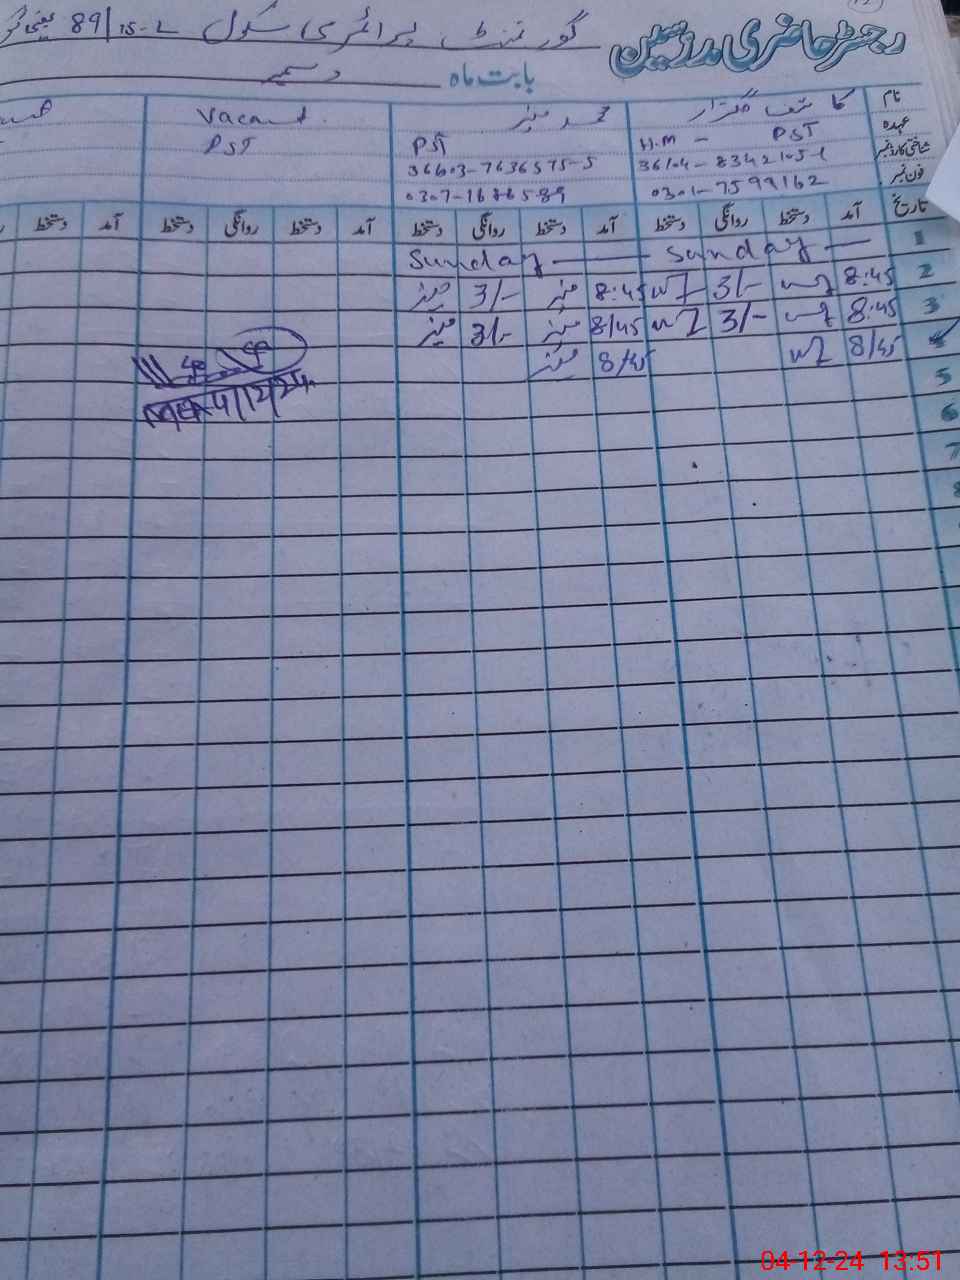 رجسٹر حاضری مدرسین گورنمنٹ پرائمری سکول 89/15-L
بابت ماہ دسمبر
نام کاشف گلزار محمد منیر Vacant
عہدہ H.M - PST PST PST
شناختی کارڈ نمبر 36104-8342105-1 36603-7636575-5
فون نمبر 0301-7599162 0307-1686589
تاریخ آمد دستخط روانگی دستخط آمد دستخط روانگی دستخط آمد دستخط روانگی دستخط آمد دستخط
1 Sunday Sunday
2 8:45 3/- 8:45 منیر 3/- منیر
3 8:45 3/- 8/45 منیر 3/- منیر
4 8/45 8/45 منیر
MEA 4/12/24
5
6
7
8
04-12-24 13:51